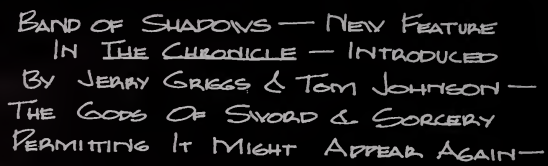 Band of Shadows — New Feature
In The Chronicle — Introduced
By Jerry Griggs & Tom Johnson —
The Gods Of Sword & Sorcery
Permitting It Might Appear Again —